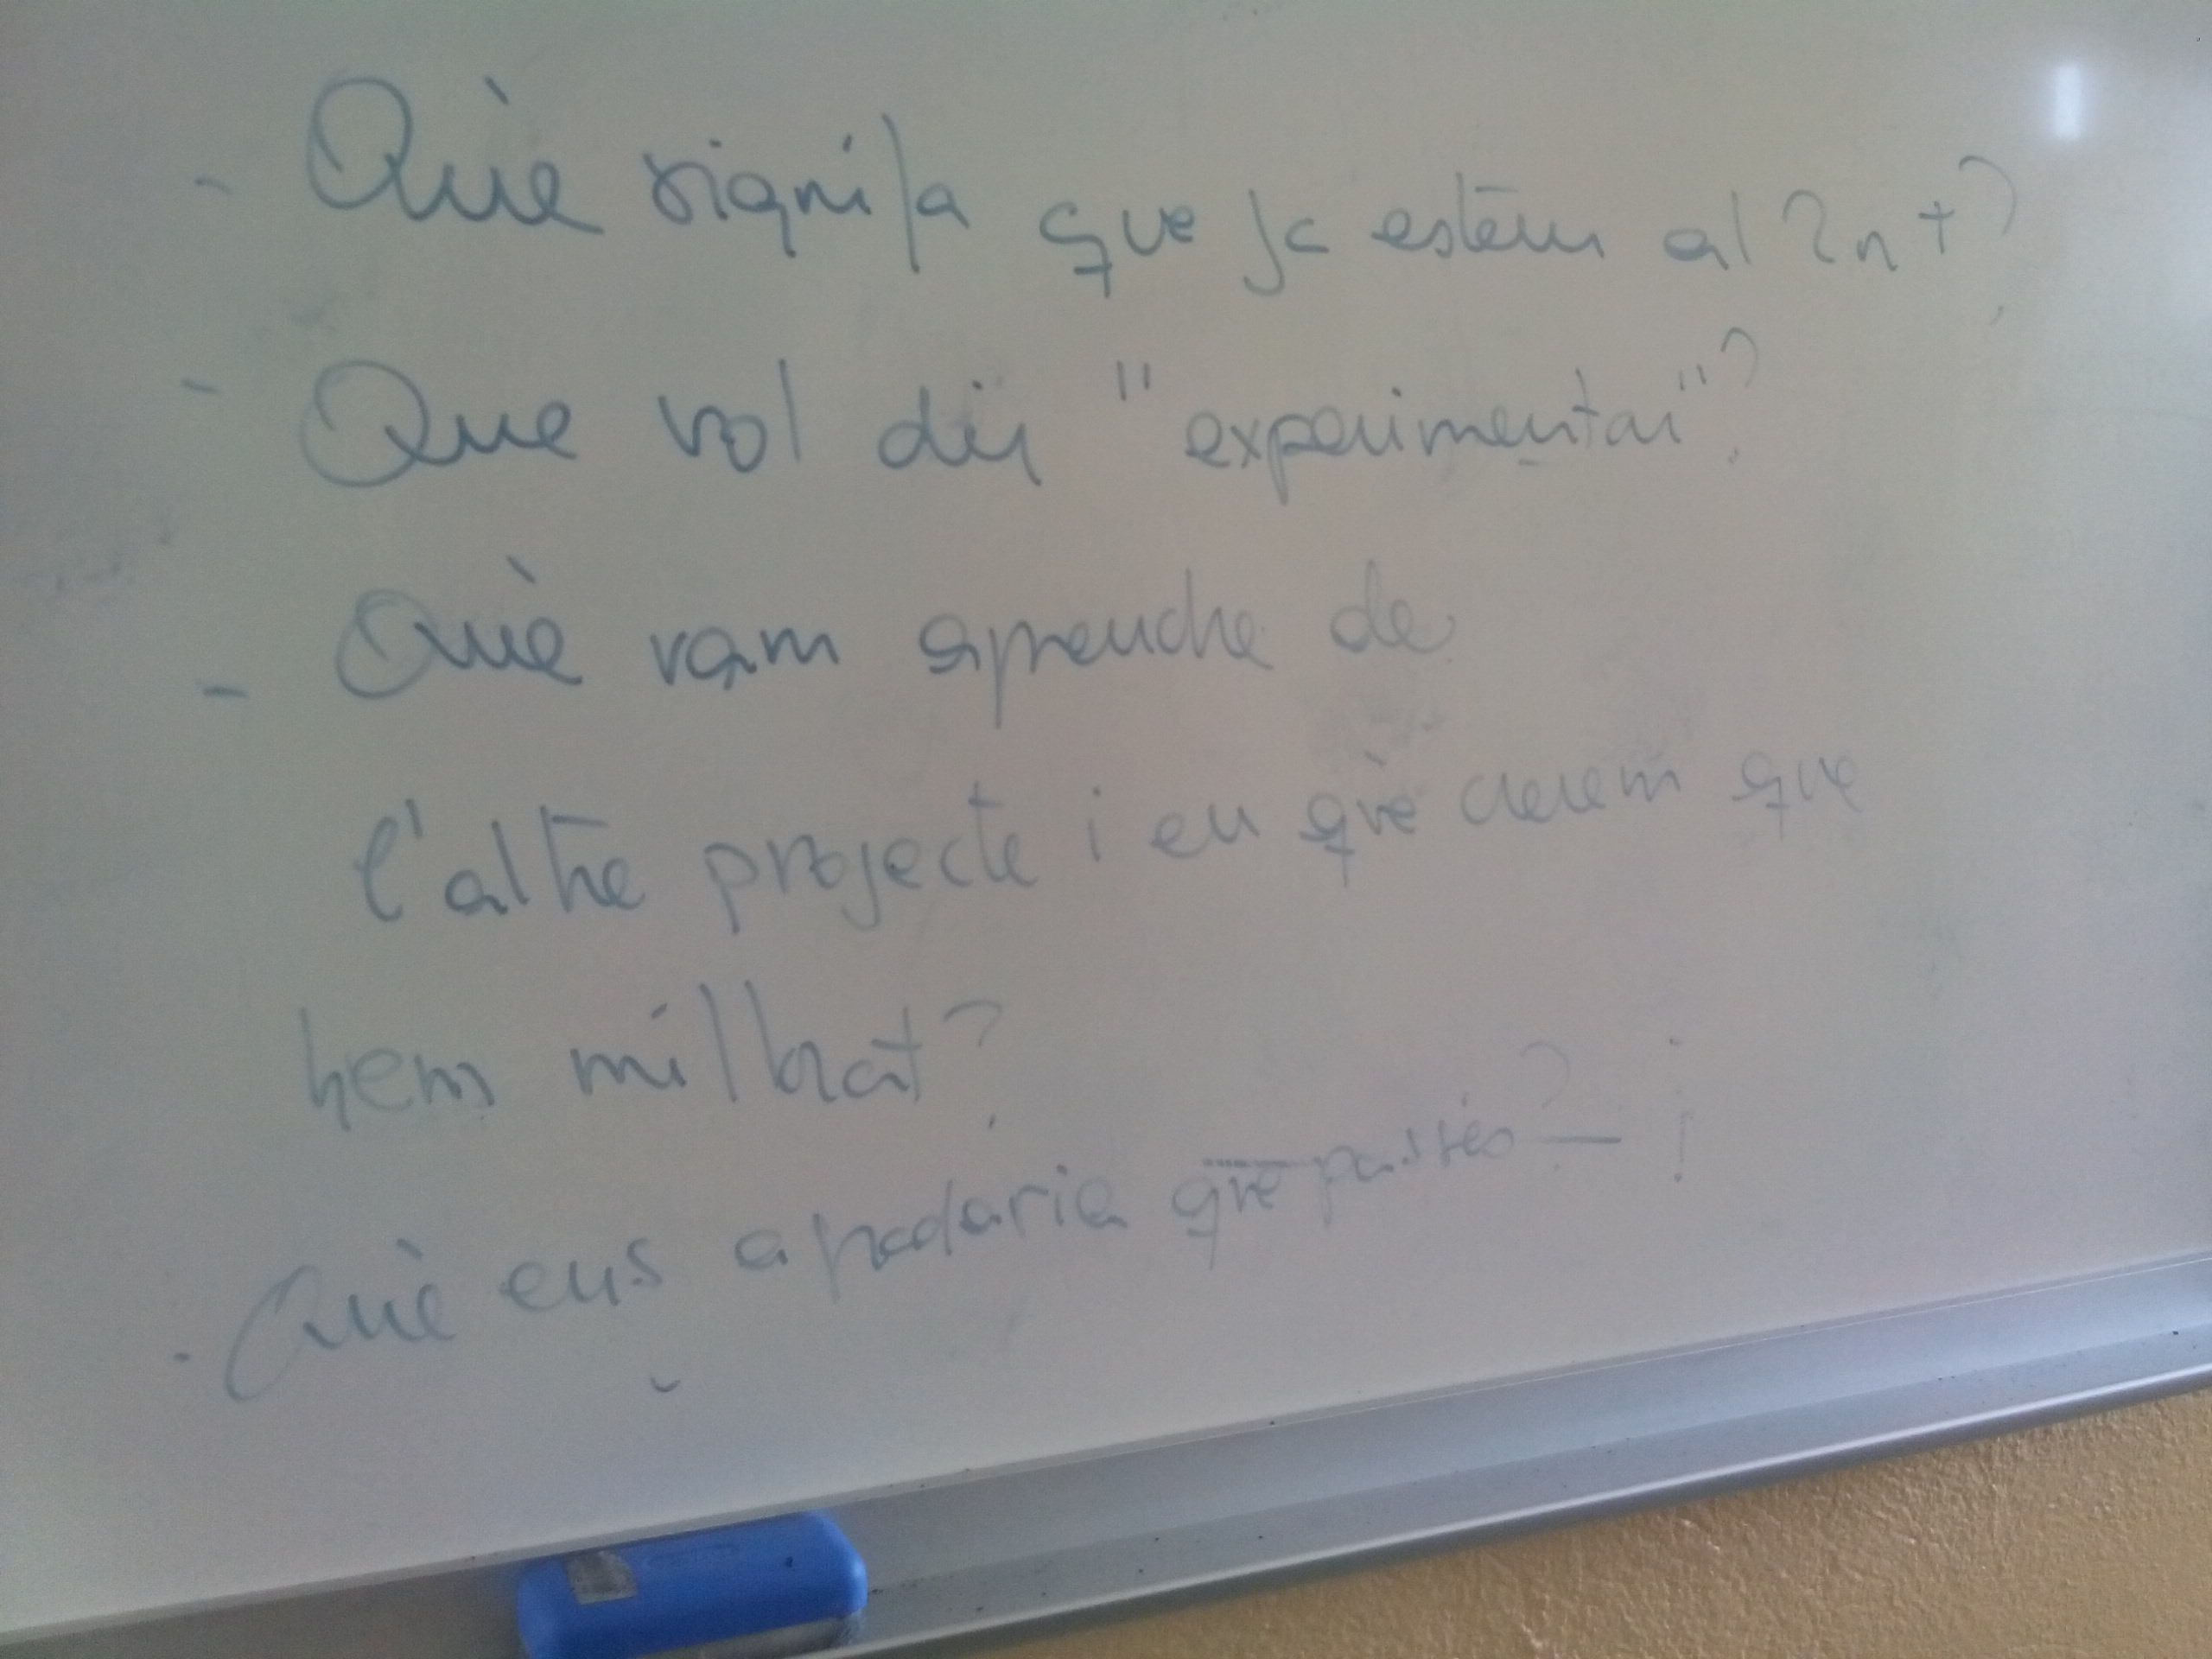 - Què signifa que ja estem al 2n t?
- Que vol dir "experimentar"?
- Què vam aprendre de
l'altre projecte i en què creiem que
hem millorat?
· Què ens agradaria que passés?